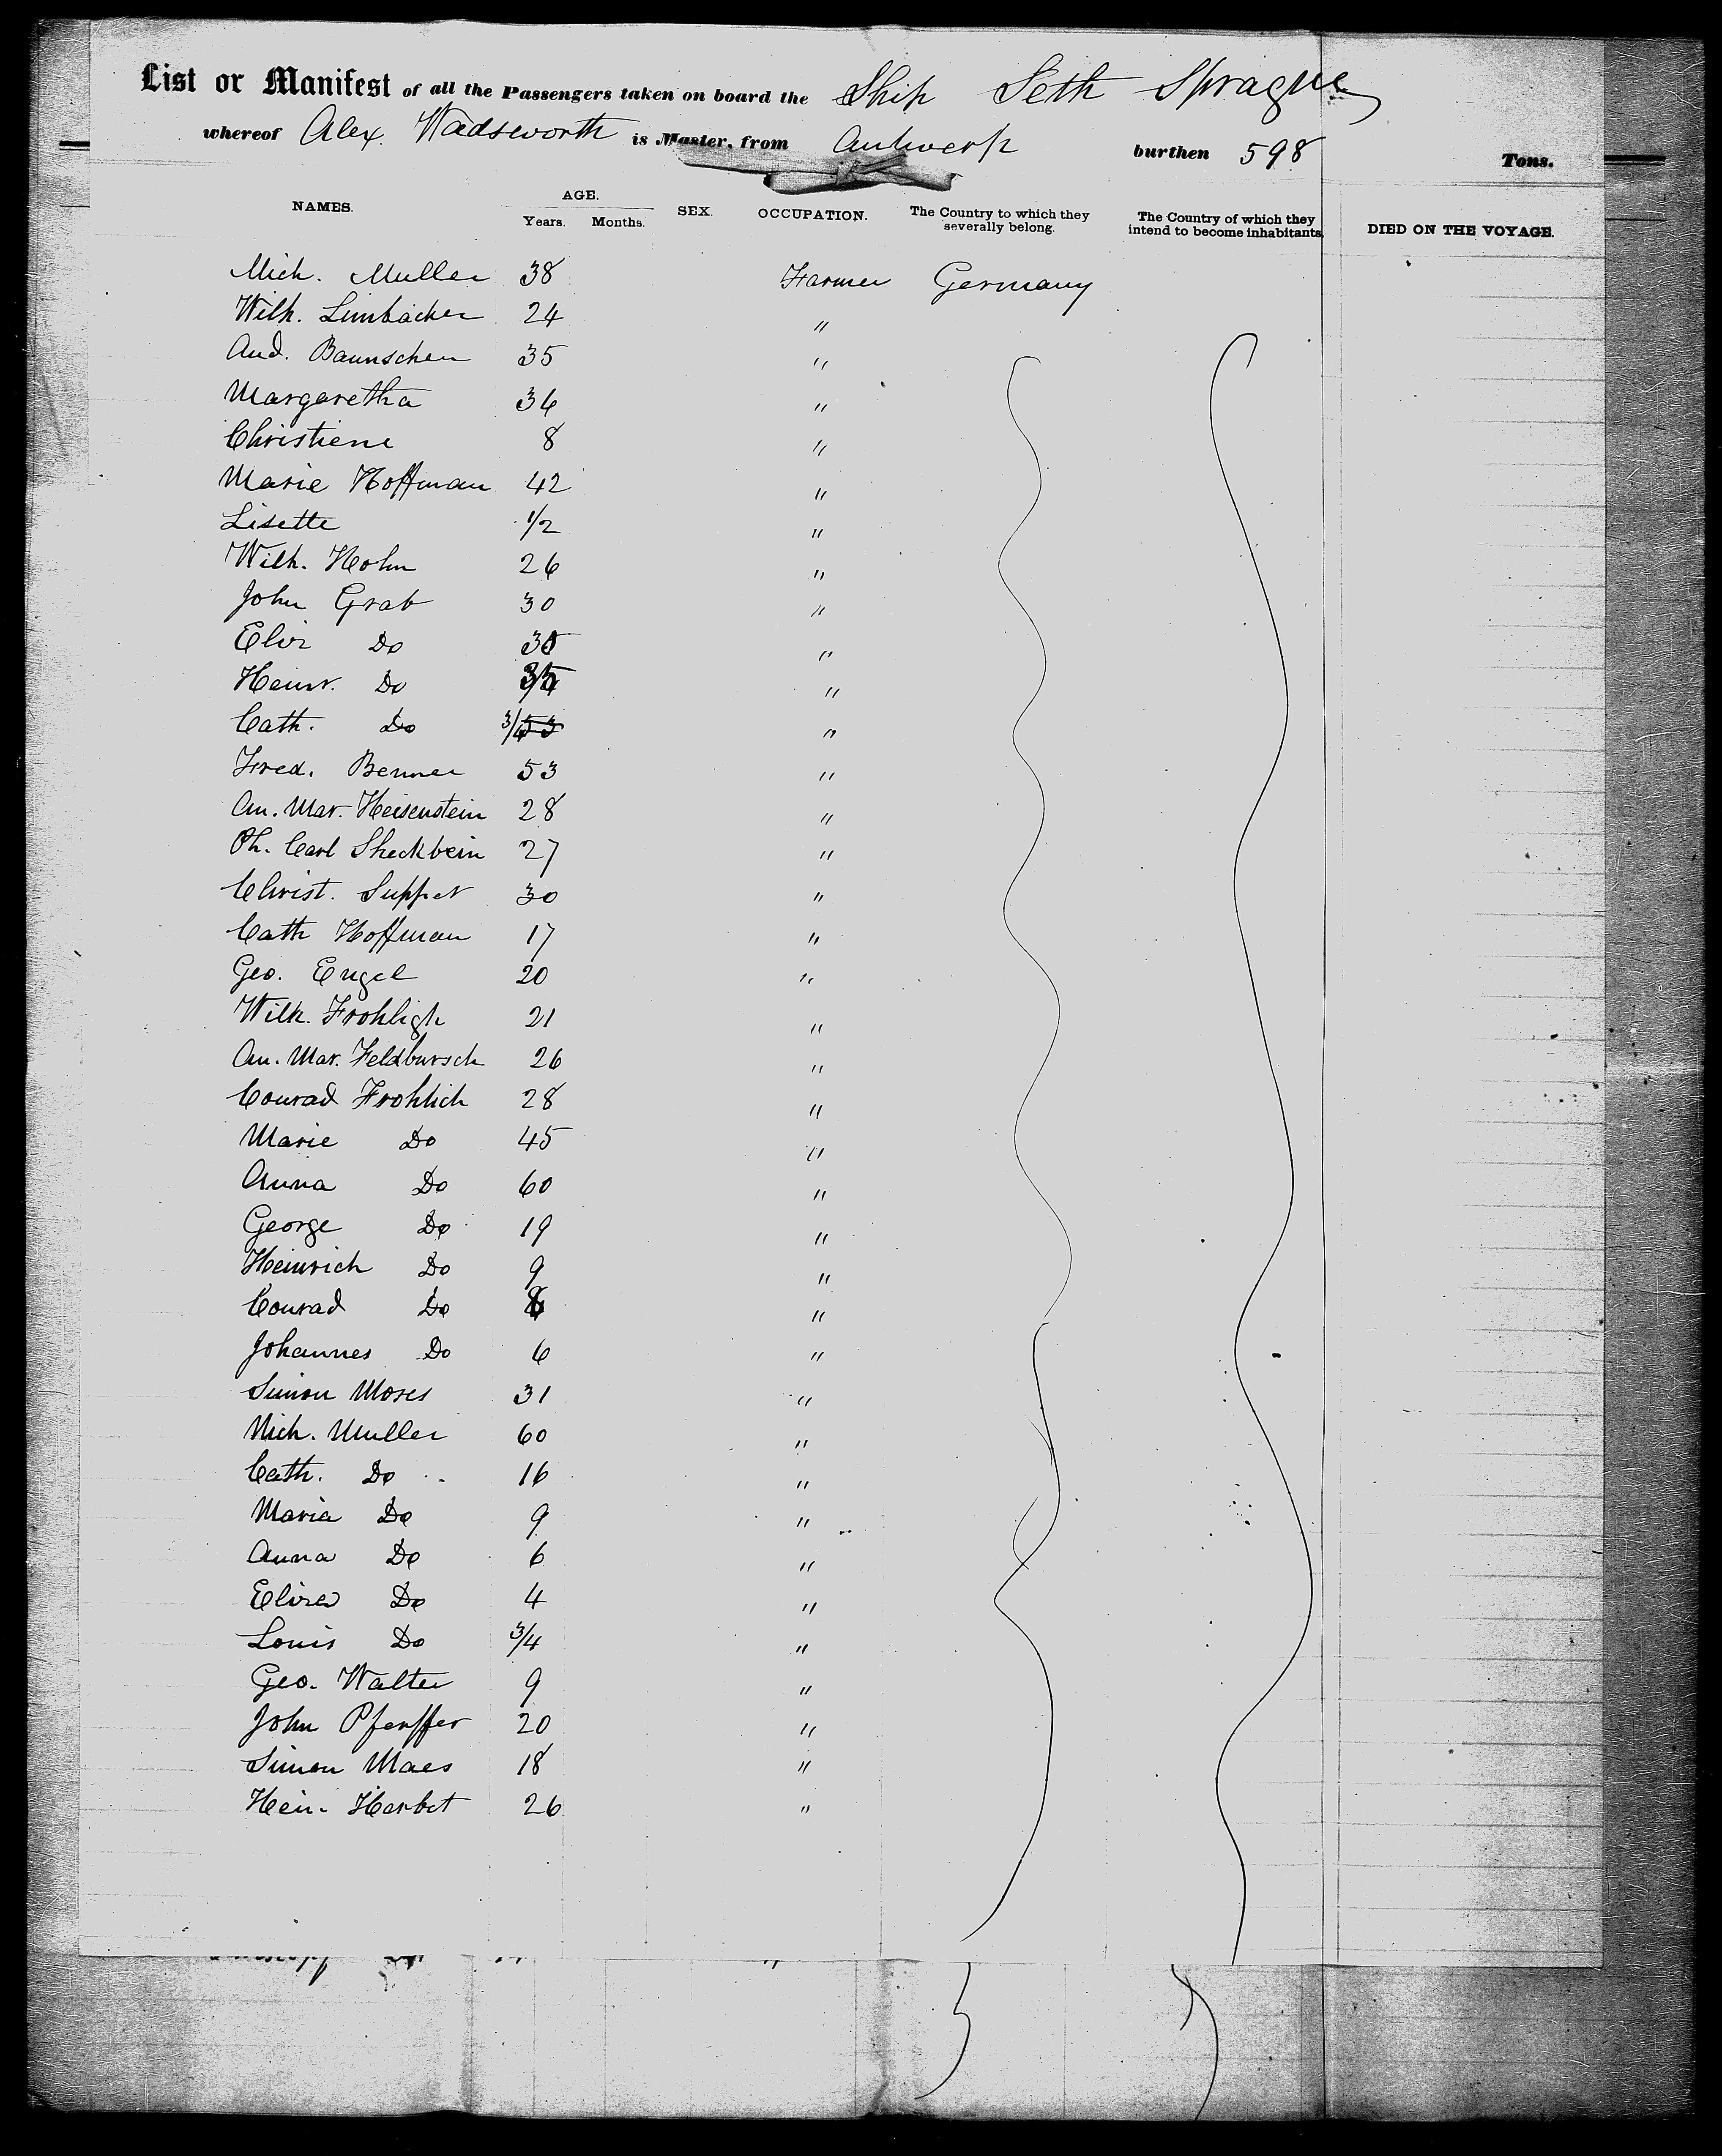 List or Manifest of all the Passengers taken on board the Ship Seth Sprague
whereof Alex. Wadsworth is Master, from Antwerp burthen 598 Tons.
NAMES. AGE. Years. Months. SEX. OCCUPATION. The Country to which they severally belong. The Country of which they intend to become inhabitants. DIED ON THE VOYAGE.
Mich. Muller 38 Farmer Germany
Wilh. Limbacher 24 "
And. Baunscher 35 "
Margaretha 36 "
Christiene 8 "
Marie Hoffman 42 "
Lisette 1/2 "
Wilh. Hohn 26 "
John Grab 30 "
Eliz Do 35 "
Heinr. Do "
Cath. Do 3/4 53 "
Fred. Benner 53 "
An. Mar. Heisenstein 28 "
Ph. Carl Sheckbein 27 "
Christ. Supper 30 "
Cath Hoffman 17 "
Geo. Engel 20 "
Wilh. Frohligh 21 "
An. Mar. Feldbursch 26 "
Conrad Frohlich 28 "
Marie Do 45 "
Anna Do 60 "
George Do 19 "
Heinrich Do 9 "
Conrad Do "
Johannes Do 6 "
Simon Moses 31 "
Mich. Muller 60 "
Cath. Do 16 "
Maria Do 9 "
Anna Do 6 "
Eliza Do 4 "
Louis Do 3/4 "
Geo. Walter 9 "
John Pfeiffer 20 "
Simon Maes 18 "
Hein. Harbet 26 "